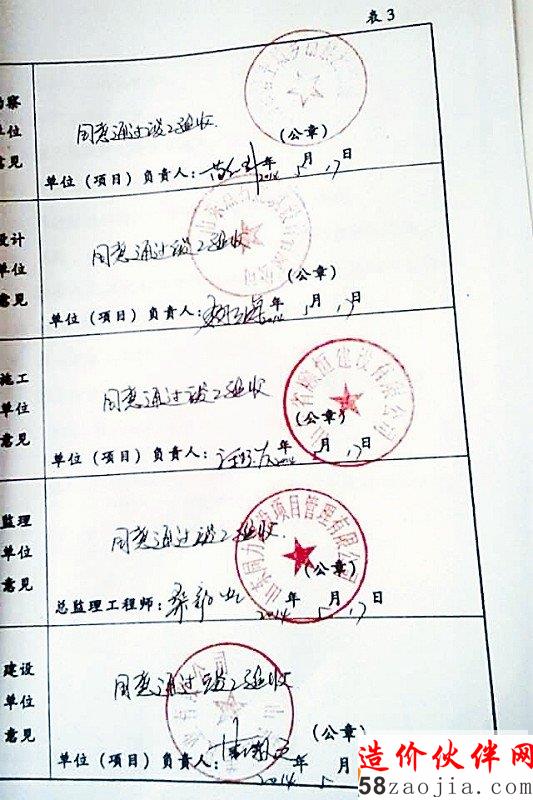 表3
勘察
单位
意见
同意通过竣工验收
(公章)
单位(项目)负责人: 2014年5月17日
设计
单位
意见
同意通过竣工验收
(公章)
单位(项目)负责人: 2014年5月17日
施工
单位
意见
同意通过竣工验收
(公章)
单位(项目)负责人: 2014年5月17日
监理
单位
意见
同意通过竣工验收
项目管理有限公司
(公章)
总监理工程师: 2014年5月17日
建设
单位
意见
同意通过竣工验收
(公章)
单位(项目)负责人: 2014 5
造价伙伴网
58zaojia.com